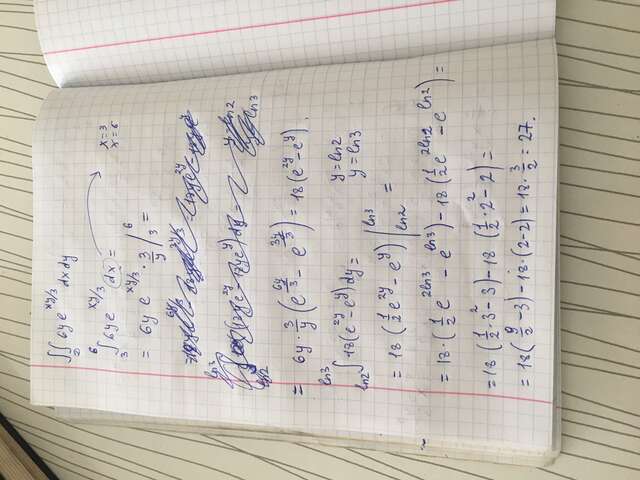 ∬_D 6y e^{xy/3} dx dy
∫_3^6 6y e^{xy/3} dx = x=3
x=6
= 6y e^{xy/3} · 3/y |_3^6 =
= 6y · 3/y (e^{6y/3} - e^{3y/3}) = 18(e^{2y} - e^y).
∫_{ln2}^{ln3} 18(e^{2y} - e^y) dy = y=ln2
y=ln3
= 18 (1/2 e^{2y} - e^y) |_{ln2}^{ln3} =
= 18 · (1/2 e^{2ln3} - e^{ln3}) - 18 (1/2 e^{2ln2} - e^{ln2}) =
= 18 (1/2 · 3^2 - 3) - 18 (1/2 · 2^2 - 2) =
= 18 (9/2 - 3) - 18 · (2-2) = 18 · 3/2 = 27.